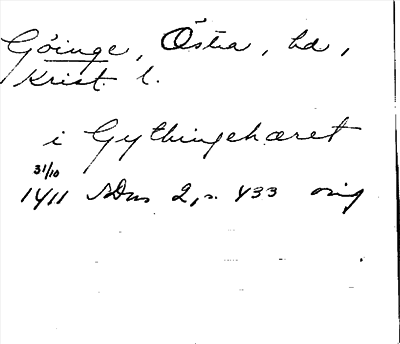 Göinge, Östra, hd,
Krist. l.
i Gythingehæret
31/10
1411 SDns 2, s. 433 orig